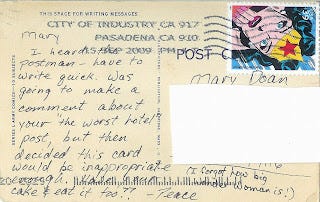 THIS SPACE FOR WRITING MESSAGES
CITY OF INDUSTRY CA 917
PASADENA CA 910
15 SEP 2009 PM
POST C
Mary
I heard the
postman - have to
write quick. Was
going to make a
comment about
your "the worst hotel"
post, but then
decided this card
would be inappropriate
enough.
cake & eat it too?? - Peace
Mary Doan
(I forgot how big
Wonder Woman is!)